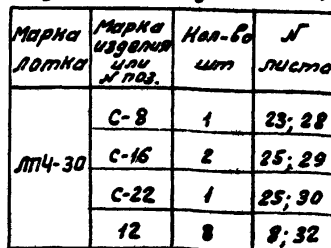 Марка лотка | Марка изделия или N поз. | Кол-во шт | N листа
ЛП4-30 | С-8 | 1 | 23; 28
С-16 | 2 | 25; 29
С-22 | 1 | 25; 30
12 | 8 | 8; 32